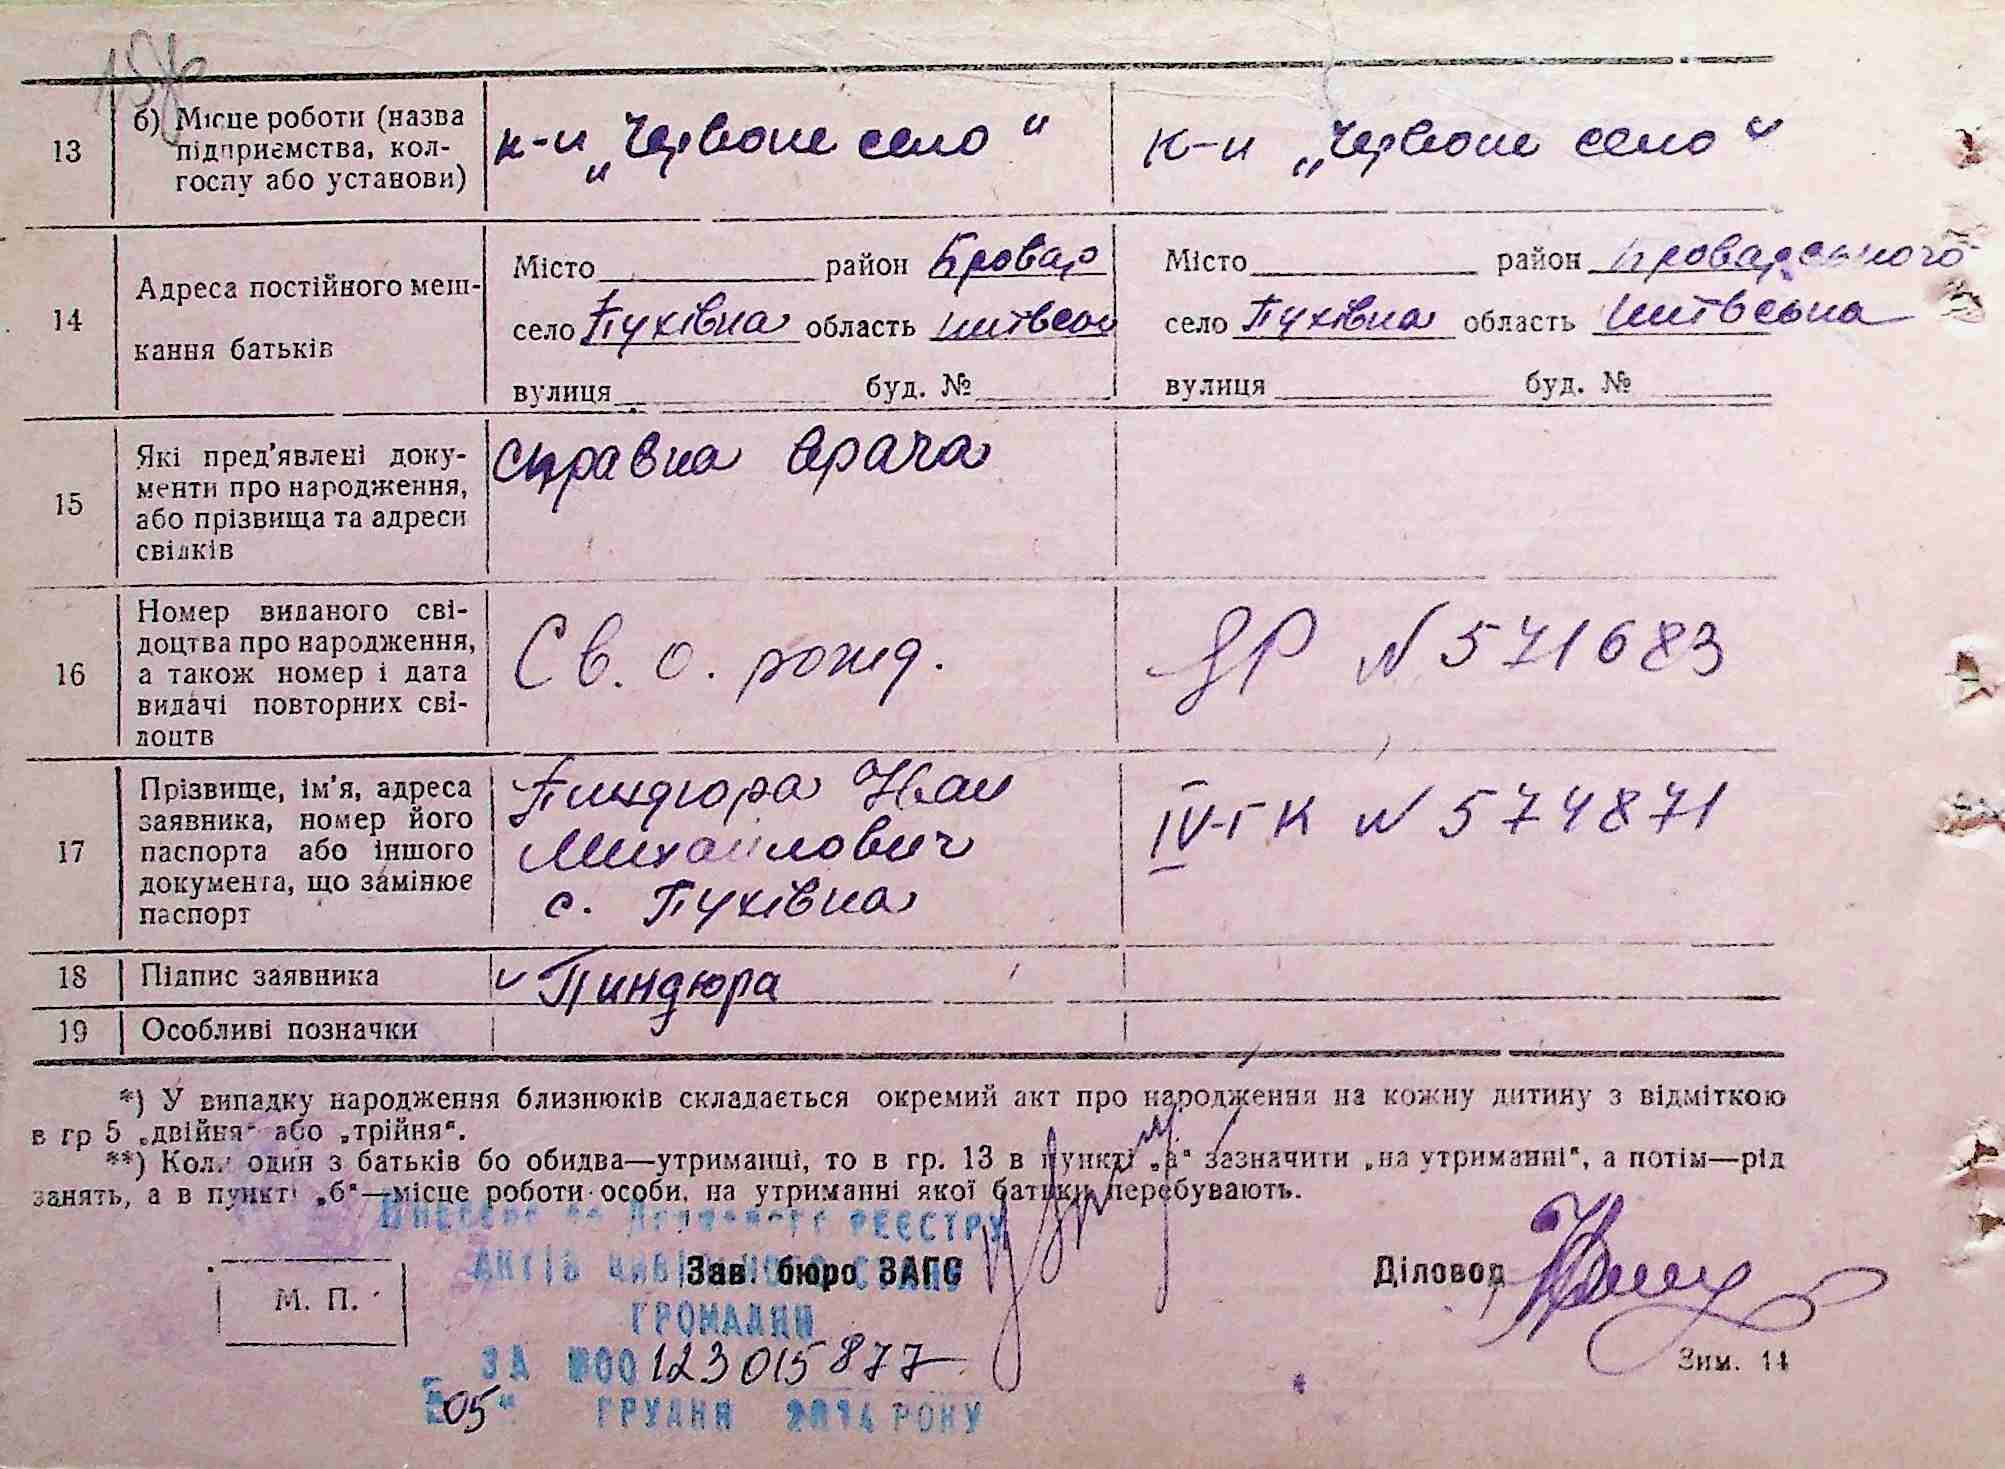 13 б) Місце роботи (назва підприємства, кол-госпу або установи) к-п „Червоне село“ к-п „Червоне село“
14 Адреса постійного меш-кання батьків
Місто район Бровар Місто район Броварського
село Пухівка область село Пухівка область Київська
вулиця буд. № вулиця буд. №
15 Які пред'явлені доку-
менти про народження,
або прізвища та адреси
свідків
справка врача
16 Номер виданого сві-
доцтва про народження,
а також номер і дата
видачі повторних сві-
доцтв
Св. о. рожд. N 571683
17 Прізвище, ім'я, адреса
заявника, номер його
паспорта або іншого
документа, що замінює
паспорт
Пиндюра Иван
Михайлович
с. Пухівка
IV-ГК N 574871
18 Підпис заявника Пиндюра
19 Особливі позначки
*) У випадку народження близнюків складається окремий акт про народження на кожну дитину з відміткою
в гр 5 „двійня“ або „трійня“.
**) Коли один з батьків бо обидва—утриманці, то в гр. 13 в пункті „а“ зазначити „на утриманні“, а потім—рід
занять, а в пункті „б“—місце роботи особи, на утриманні якої батьки перебувають.
Внесено до Державного РЕЄСТРУ
АКТІВ ЦИВІЛЬНОГО СТАНУ
ГРОМАДЯН
ЗА №00123015877
"05" ГРУДНЯ 2014 РОКУ
М. П.
Зав. бюро ЗАГС
Діловод
Зим. 14